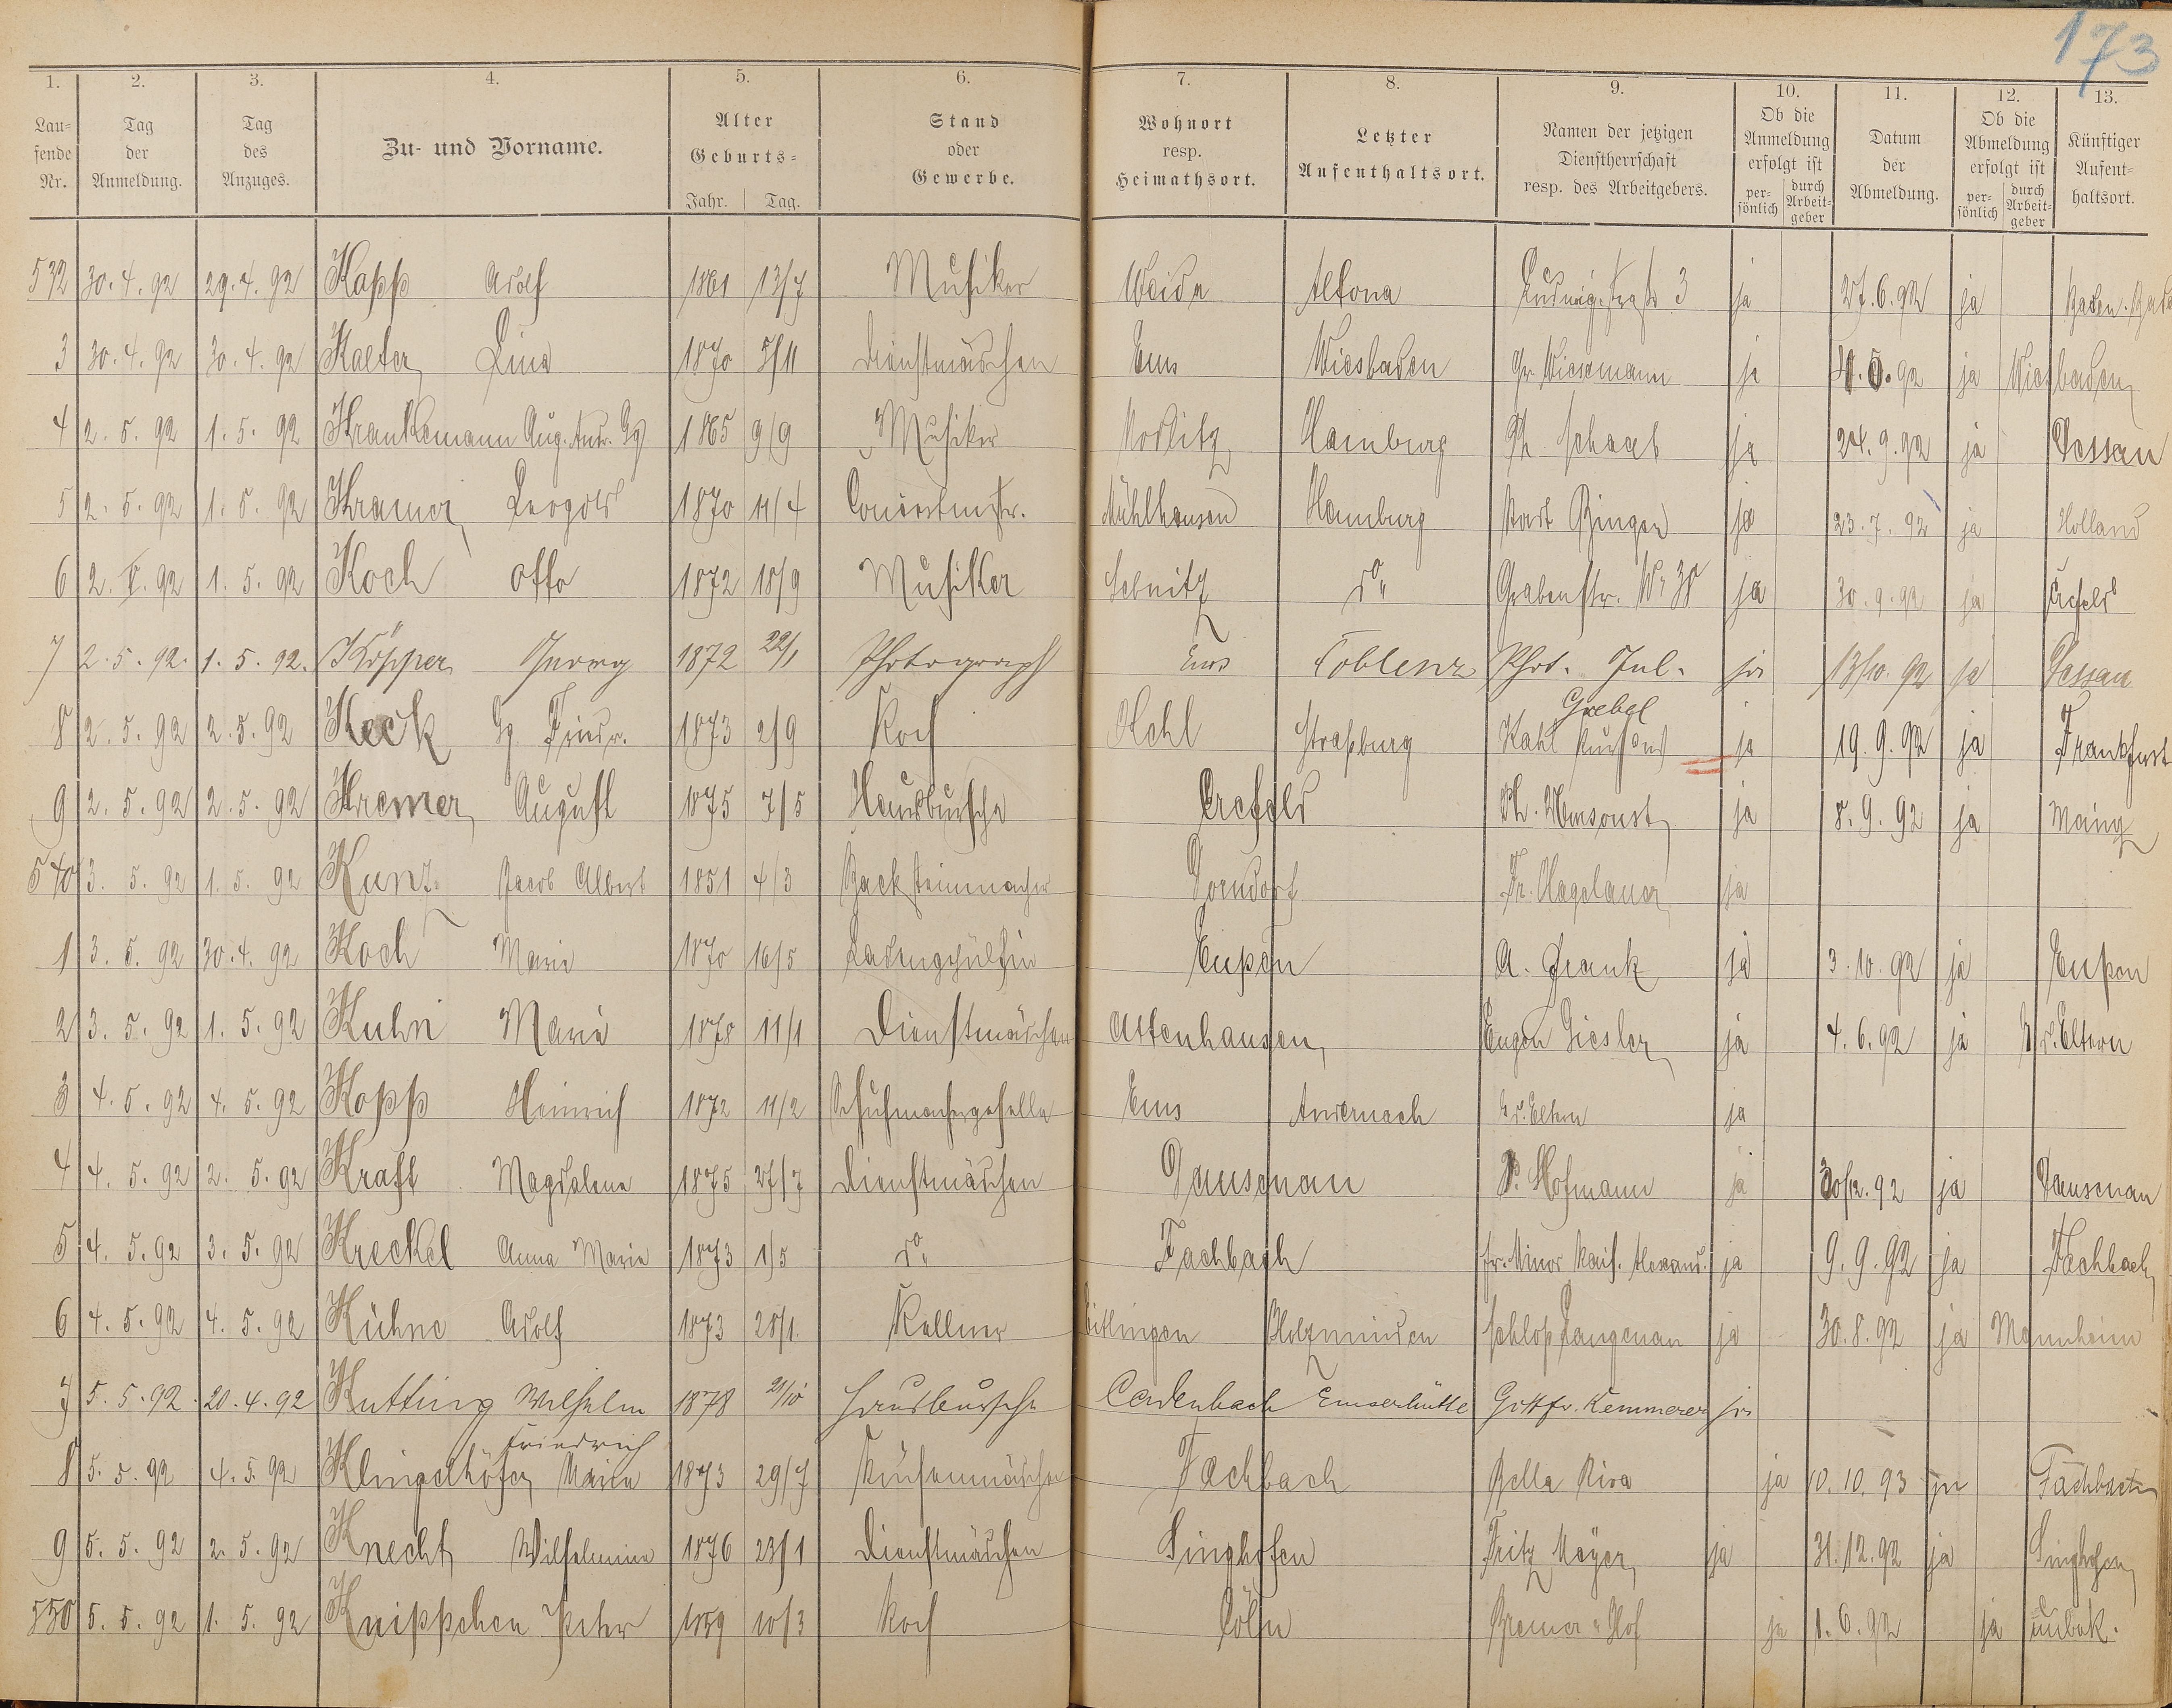 173
1. 2. 3. 4. 5. 6. 7. 8. 9. 10. 11. 12. 13.
Lau- fende Nr. Tag der Anmeldung. Tag des Anzuges. Zu- und Vorname. Alter Geburts- Jahr. Tag. Stand oder Gewerbe. Wohnort resp. Heimathsort. Letzter Aufenthaltsort. Namen der jetzigen Dienstherrschaft resp. des Arbeitgebers. Ob die Anmeldung erfolgt ist per- sönlich durch Arbeit- geber Datum der Abmeldung. Ob die Abmeldung erfolgt ist per- sönlich durch Arbeit- geber Künftiger Aufent- haltsort.
532 30.4.92 29.4.92 Kapp Adolf 1861 13/7 Musiker Weida Altona 3 ja 27.6.92 ja
3 30.4.92 30.4.92 Kalter Lina 1870 5/11 Dienstmädchen Ems Wiesbaden Gr. Wiesemann ja 92 ja Wiesbaden
4 2.5.92 1.5.92 Krankemann Aug. Andr. Gg 1865 9/9 Musiker Hamburg Ph. Schaab ja 24.9.92 ja Dessau
5 2.5.92 1.5.92 Kramer Leopold 1870 11/4 Concertmstr. Mühlhausen Hamburg Stadt Bingen ja 23.7.92 ja Holland
6 2.5.92 1.5.92 Koch Otto 1872 18/9 Musiker Sebnitz do. Grabenstr. Nr 38 ja 30.9.92 ja Crefeld
7 2.5.92. 1.5.92. Köpper Georg 1872 22/1 Photograph Ems Coblenz Phot. Jul. Grebel ja 13/10.92 ja Dessau
8 2.5.92 2.5.92 Keck Gg. Friedr. 1873 2/9 Koch Kehl Straßburg ja 19.9.92 ja Frankfurt
9 2.5.92 2.5.92 Kremer August 1875 7/5 Hausbursche Crefeld Ph. Umsonst ja 8.9.92 ja Mainz
540 3.5.92 1.5.92 Kunz Jacob Albert 1851 4/3 Backsteinmacher Dorndorf Fr. Hagelauer ja
1 3.5.92 30.4.92 Koch Marie 1870 16/5 Ladengehülfin Eupen A. Frank ja 3.10.92 ja Eupen
2 3.5.92 1.5.92 Kuhn Marie 1878 11/1 Dienstmädchen Attenhausen Eugen Giesler ja 4.6.92 ja z. d. Eltern
3 4.5.92 4.5.92 Kopp Heinrich 1872 11/2 Schuhmachergeselle Ems Andernach z. d. Eltern ja
4 4.5.92 2.5.92 Kraft Magdalene 1875 27/7 Dienstmädchen Dausenau P. Hofmann ja 30/12.92 ja Dausenau
5 4.5.92 3.5.92 Kreckel Anna Marie 1873 1/5 do. Fachbach ja 9.9.92 ja Fachbach
6 4.5.92 4.5.92 Kühne Adolf 1873 28/1. Kellner Holzminden Schloß Langenau ja 30.8.92 ja Mannheim
7 5.5.92. 20.4.92 Kutting Wilhelm Friedrich 1878 21/10 Hausbursche Cadenbach Emserhütte Gottfr. Kemmerer ja
8 5.5.92 4.5.92 Klingelhöfer Marie 1873 29/7 Küchenmädchen Fachbach Bella Riva ja 10.10.93 ja Fachbach
9 5.5.92 2.5.92 Knecht Wilhelmine 1876 23/1 Dienstmädchen Singhofen Fritz Mayer ja 31.12.92 ja Singhofen
550 5.5.92 1.5.92 Knippchen Peter 1859 10/3 Koch Cöln Bremer Hof ja 1.6.92 ja unbek.